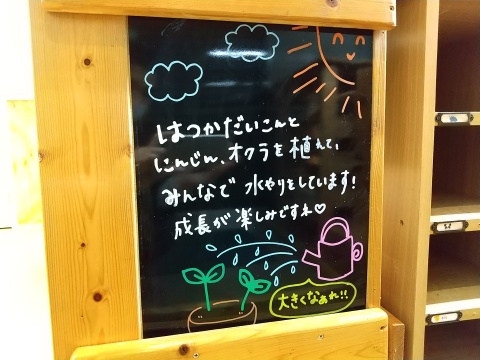 はつかだいこんと
にんじん、オクラを植えて、
みんなで 水やりをしています!
成長が楽しみですね♡
大きくなあれ!!